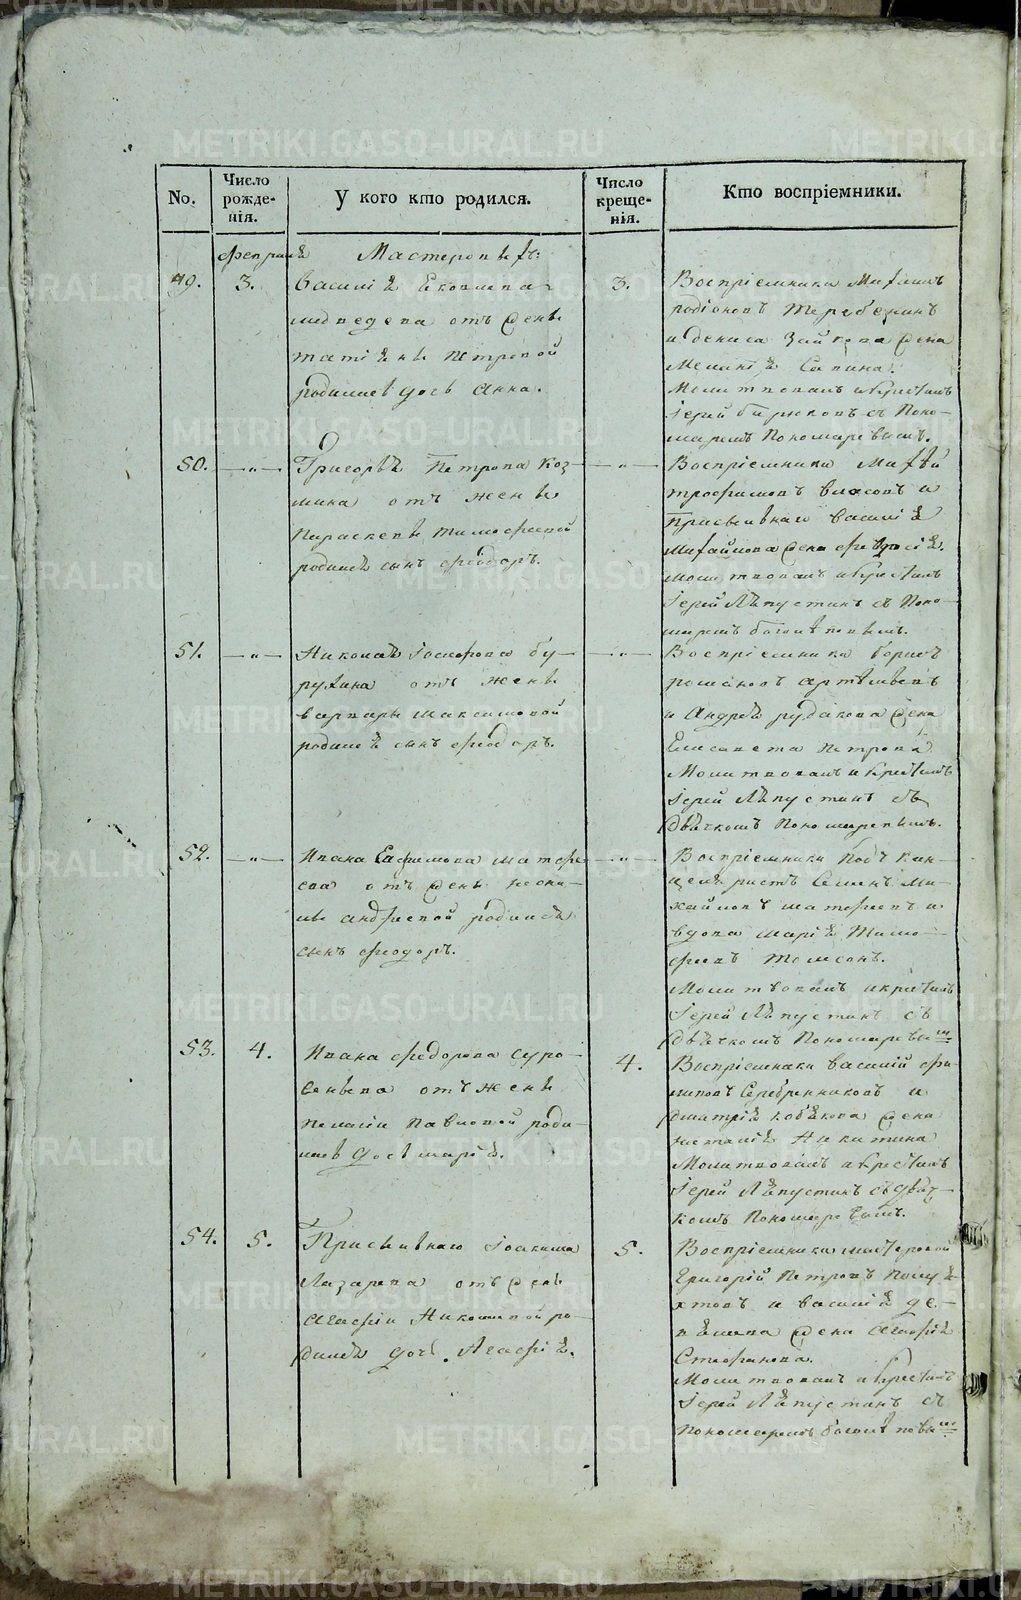 No.
Число рожде-нія.
У кого кто родился.
Число креще-нія.
Кто воспріемники.
февраля
Мастеровыхъ:
49.
3.
Василія Яковлева
медведева отъ жены
татіяны Петровой
родилась дочь Анна.
3.
Воспріемники
родіоновъ Теребенинъ
и дениса Зайкова жена
Савина.
Молитвовалъ и крестилъ
Іерей бирюковъ съ Поно-
маремъ Пономаревымъ.
50.
— „ —
Григорья Петрова Коз-
мина отъ жены
Параскевы тимофеевой
родился сынъ феодоръ.
— „ —
Воспріемники
трофимовъ власовъ и
василія
Михайлова жена
молитвовалъ и крестилъ
Іерей Ляпустинъ съ Поно-
маремъ
51.
— „ —
Николая Іосифова бу-
рухина отъ жены
варвары максимовой
родился сынъ феодоръ.
— „ —
Воспріемники борисъ
романовъ артемьевъ
и Андрея рудакова жена
Елисавета петрова
Молитвовалъ и крестилъ
Іерей Ляпустинъ съ
дьячкомъ Пономаревымъ.
52.
— „ —
Ивана Ефимова матфе-
ева отъ жены
андреевой родился
сынъ феодоръ.
— „ —
Воспріемники Подъ кан-
целяристъ Семенъ Ми-
хайловъ матфеевъ и
вдова марія Тимо-
Молитвовалъ и крестилъ
Іерей Ляпустинъ съ
дьячкомъ Пономаревым
53.
4.
Ивана федорова суро-
отъ жены
пелагіи Павловой роди-
лась дочь марія.
4.
Воспріемники василій фи-
липовъ Серебренниковъ и
дмитрія кобякова жена
наталія Никитина
Молитвовалъ и крестилъ
Іерей Ляпустинъ съ дьяч-
комъ Пономаревымъ.
54.
5.
Іоакима
Лазарева отъ жены
агафіи Николаевой ро-
дилась дочь Агафія.
5.
Воспріемники мастеровой
Григорій Петровъ Полу-
ектовъ и василія
жена агафія
Стефанова.
Молитвовалъ и крестилъ
Іерей Ляпустинъ съ
Пономаремъ
METRIKI.GASO-URAL.RU